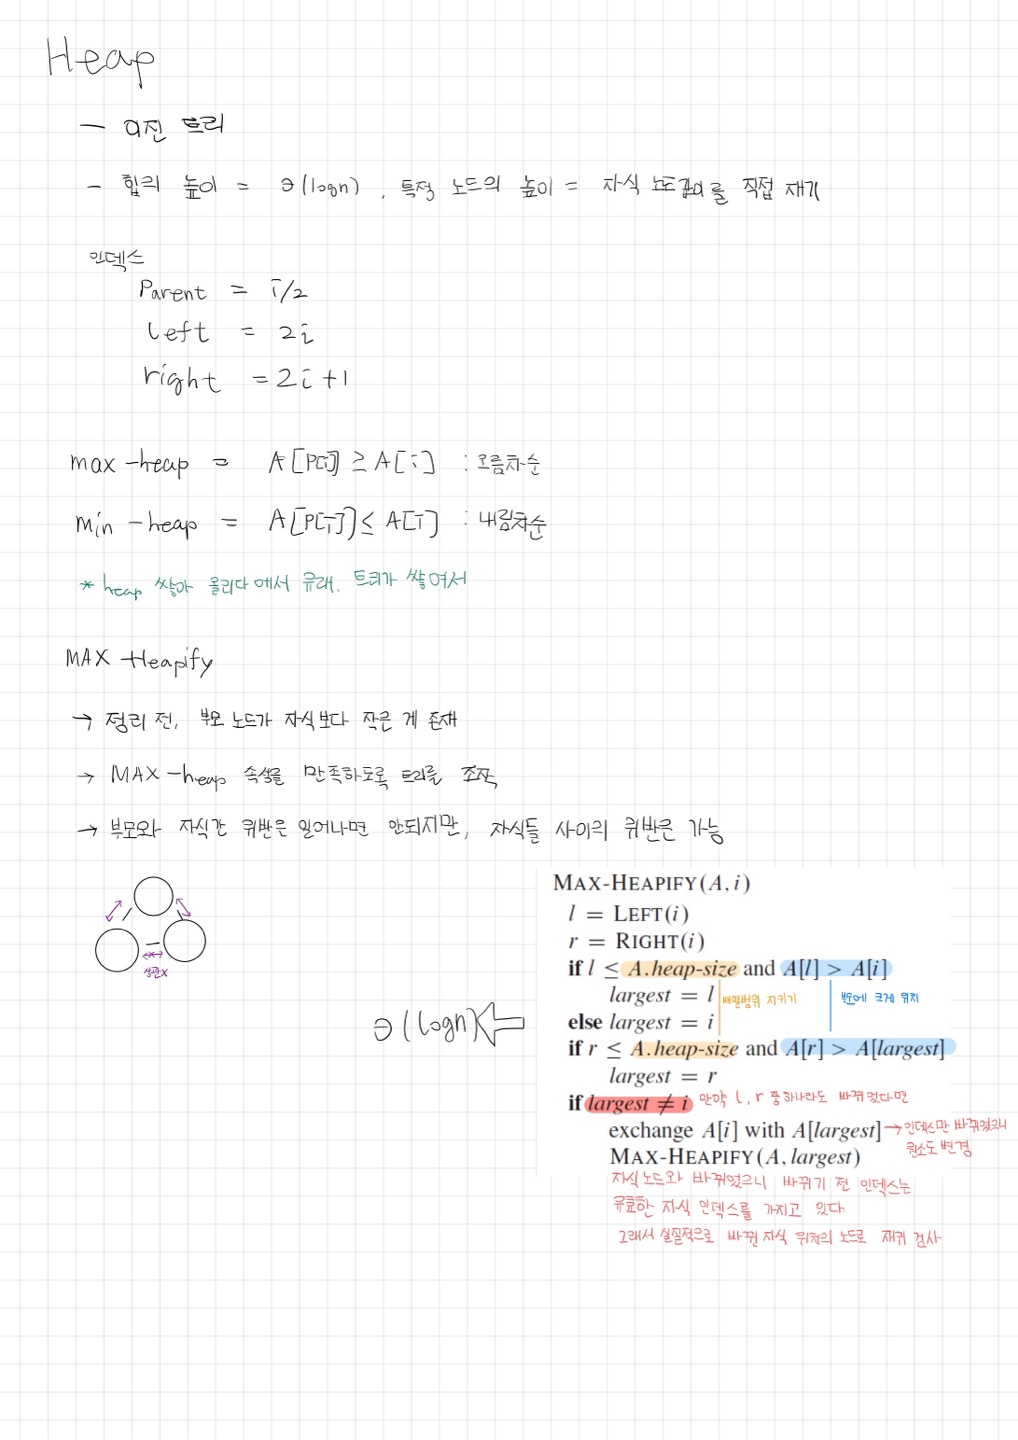 Heap
- 이진 트리
- 힙의 높이 = Θ(logn), 특정 노드의 높이 = 자식 노드 를 직접 재기
인덱스
Parent = i/2
left = 2i
right = 2i+1
max-heap = A[P[i]] ≥ A[i] : 오름차순
min-heap = A[P[i]] ≤ A[i] : 내림차순
* heap 쌓아 올리다 에서 유래. 트리가 쌓여서
MAX-Heapify
→ 정리 전, 부모 노드가 자식보다 작은 게 존재
→ MAX-heap 속성을 만족하도록 트리를 조작
→ 부모와 자식간 위반은 일어나면 안되지만, 자식들 사이의 위반은 가능
상관X
Θ(logn)
MAX-HEAPIFY(A, i)
l = LEFT(i)
r = RIGHT(i)
if l ≤ A.heap-size and A[l] > A[i]
largest = l
배열범위 지키기
else largest = i
if r ≤ A.heap-size and A[r] > A[largest]
largest = r
if largest ≠ i 만약 l, r 중 하나라도 바뀌었다면
exchange A[i] with A[largest] → 인덱스만 바뀌었으니
원소도 변경
MAX-HEAPIFY(A, largest)
자식 노드와 바뀌었으니 바뀌기 전 인덱스는
유효한 자식 인덱스를 가지고 있다
그래서 실질적으로 바뀐 자식 위치의 노드로 재귀 검사